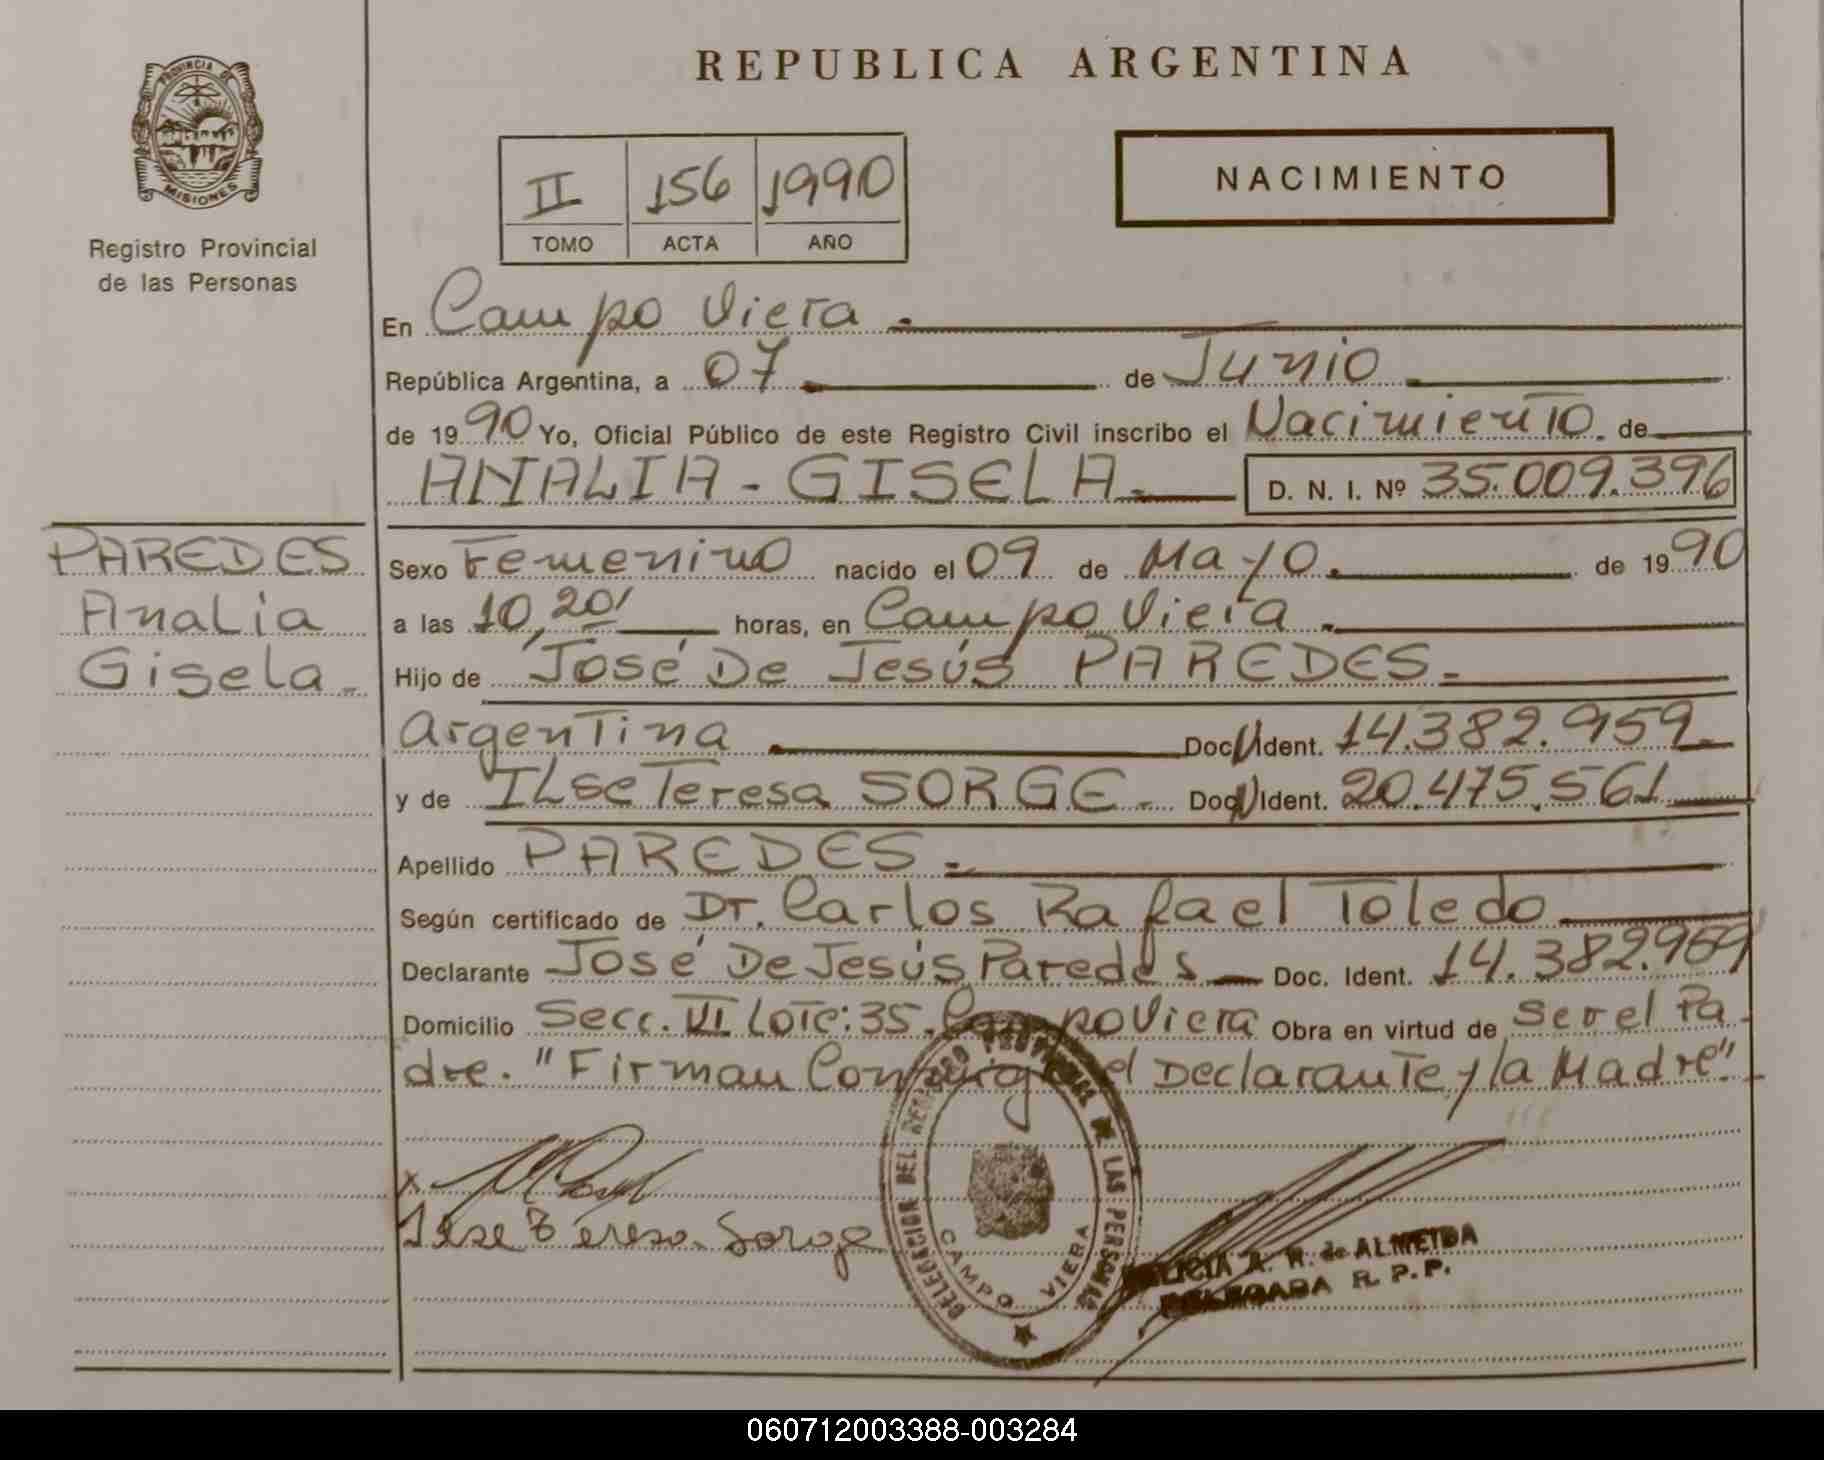 REPUBLICA ARGENTINA
PROVINCIA DE
MISIONES
Registro Provincial
de las Personas
II 156 1990
TOMO ACTA AÑO
NACIMIENTO
En Campo Viera.
República Argentina, a 07 de Junio
de 1990 Yo, Oficial Público de este Registro Civil inscribo el Nacimiento de
ANALIA - GISELA.- D. N. I. Nº 35.009.396
PAREDES
Analia
Gisela.-
Sexo Femenino nacido el 09 de Mayo. de 1990
a las 10,20' horas, en Campo Viera.
Hijo de José De Jesús PAREDES.-
Argentina Doc. Ident. 14.382.959.
y de ILse Teresa SORGE.- Doc. Ident. 20.475.561
Apellido PAREDES.-
Según certificado de Dr. Carlos Rafael Toledo
Declarante José De Jesús Paredes Doc. Ident. 14.382.959
Domicilio Secc. VI Lote: 35. Campo Viera Obra en virtud de ser el Pa-
dre. "Firman Conmigo el Declarante y la Madre".-
Ilse Teresa Sorge
DELEGACION DEL REGISTRO PROVINCIAL DE LAS PERSONAS
CAMPO VIERA
ALICIA A. R. de ALMEIDA
DELEGADA R. P. P.
060712003388-003284